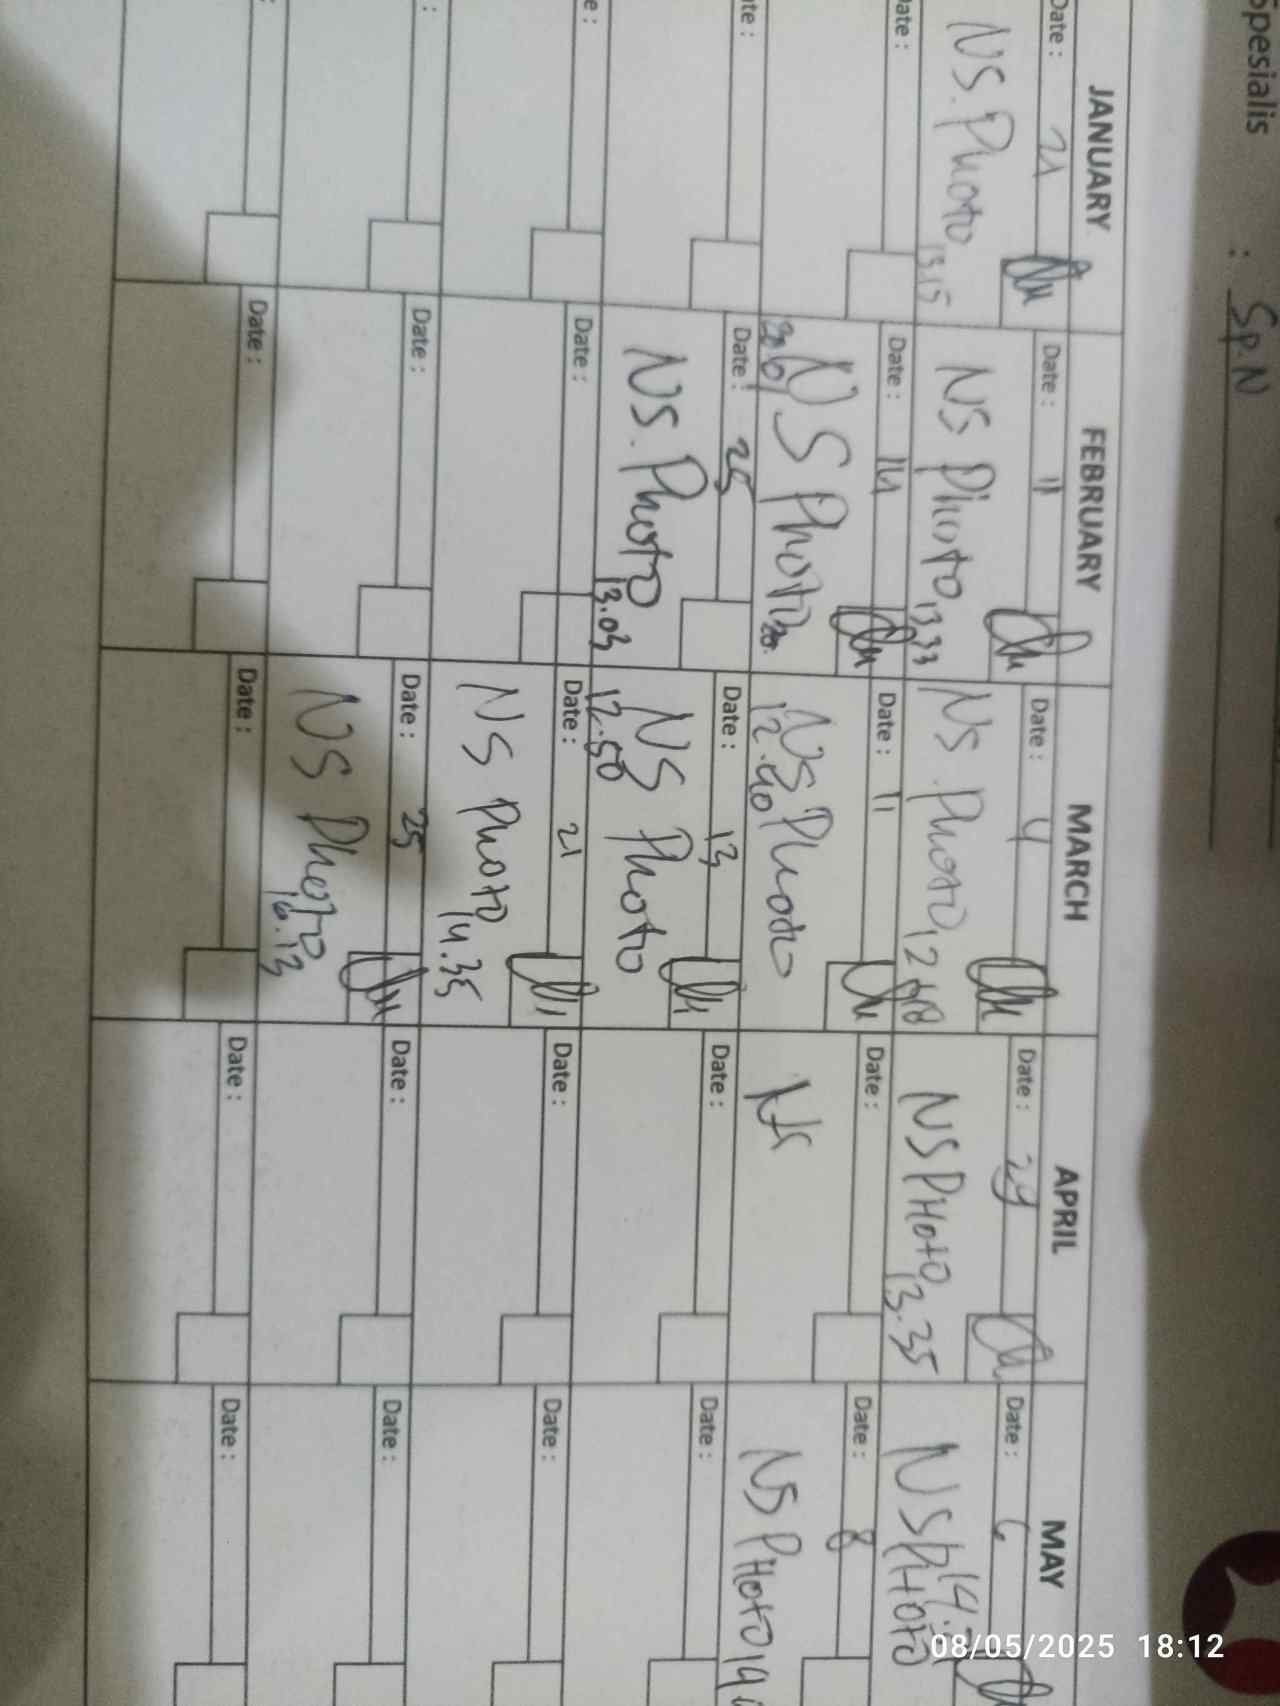 Spesialis : Sp.N
JANUARY FEBRUARY MARCH APRIL MAY
Date : 21
NS. Photo 13.15
Date : 11
NS Photo 13.33
Date : 4
NS Photo
Date : 29
NS PHoto 13.35
Date : 6
NS PHoto
Date :
Date : 14
NS Photo
Date : 11
NS Photo
12.40
Date :
NS
Date : 8
NS PHoto
Date : 25
NS. Photo 13.03
Date : 13
NS Photo
12.50
Date :
Date :
Date :
Date : 21
NS Photo 14.35
Date :
Date :
Date :
Date : 25
NS Photo 16.13
Date :
Date :
Date :
Date :
Date :
Date :
08/05/2025 18:12